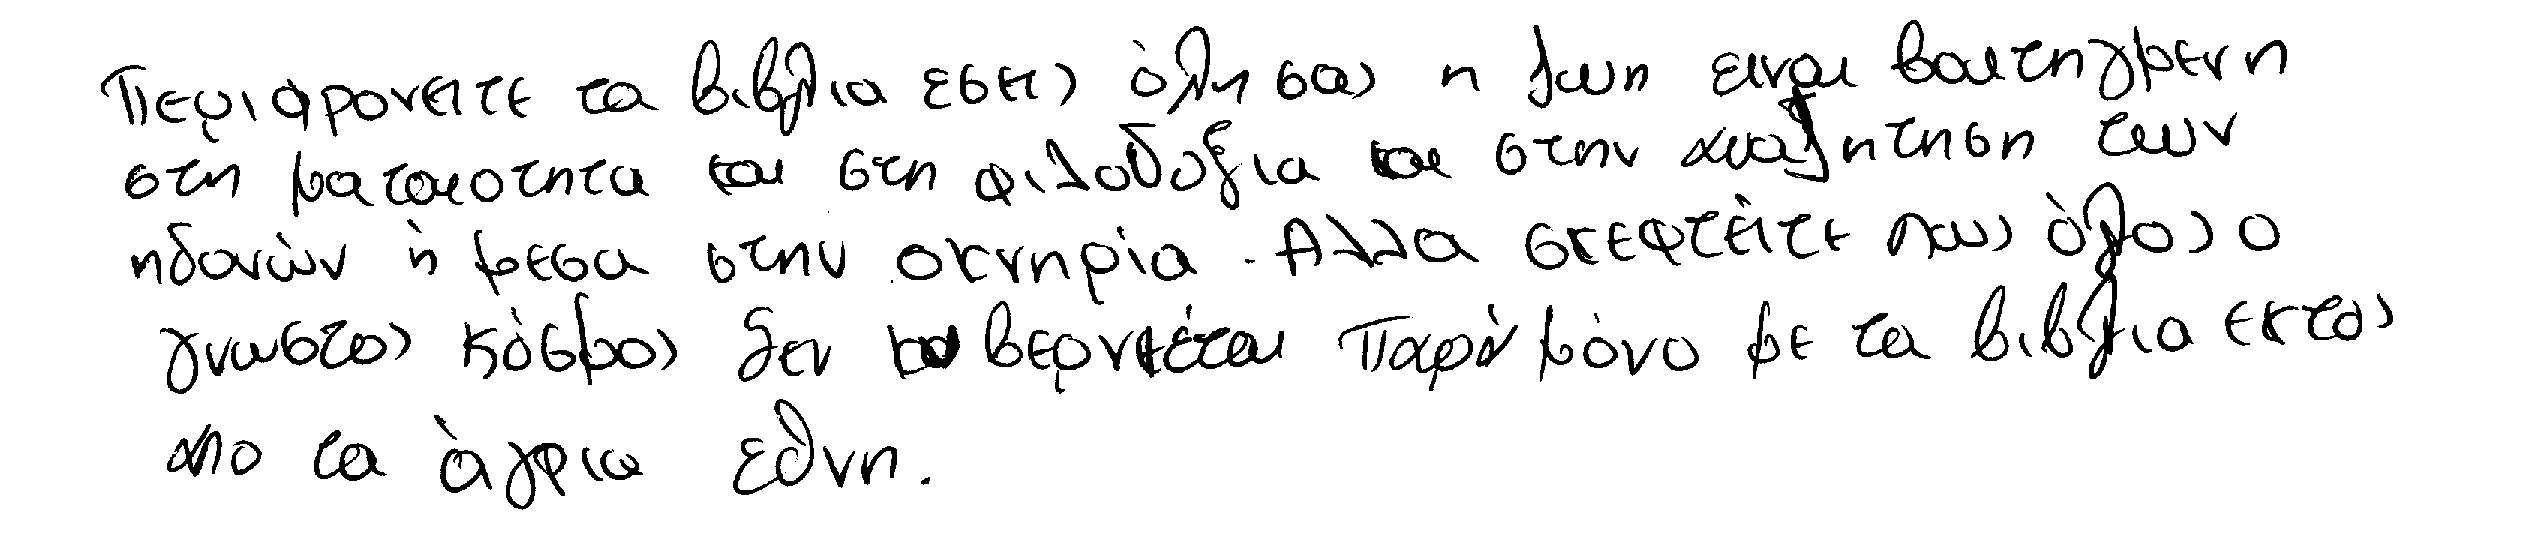 Περιφρονειτε τα βιβλια εσεις όλη σας η ζωη ειναι βουτηγμενη
στη ματαιοτητα και στη φιλοδοξια και στην αναζητηση των
ηδονών ή μεσα στην οκνηρία. Αλλα σκεφτείτε πως όλος ο
γνωστος κόσμος δεν κυβερνιέται παρά μόνο με τα βιβλια εκτος
απο τα άγρια εθνη.